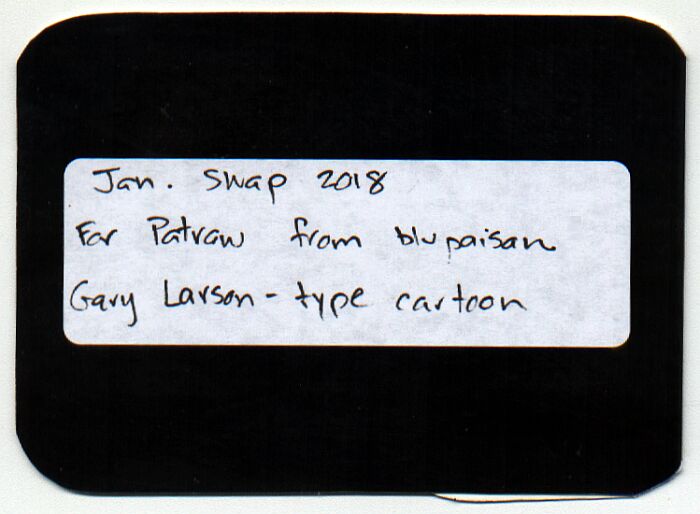 Jan. Swap 2018
For Patraw from blupaisan
Gary Larson-type cartoon